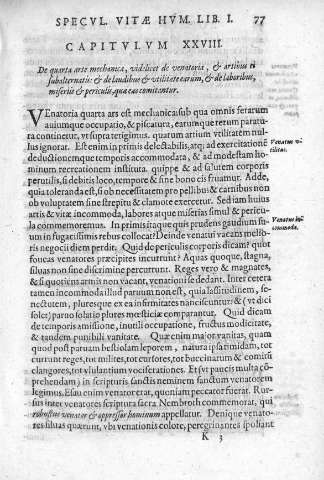 SPECUL. VITÆ HVM. LIB. I. 77
CAPITVLVM XXVIII.
De quarta arte mechanica, videlicet de venatoria, & artibus ei
subalternatis: & de laudibus & vtilitate earum, & de laboribus,
miseriis & periculis, quæ eas comitantur.
VEnatoria quarta ars est mechanica: sub qua omnis ferarum
auiumque occupatio, & piscatura, earumque rerum paratu-
ra continetur, vt supra tetigimus. quarum artium vtilitatem nul-
lus ignorat. Est enim in primis delectabilis, atq; ad exercitationē
deductionemque temporis accommodata, & ad modestam ho-
minum recreationem instituta. quippe & ad salutem corporis
perutilis, si debitis loco, tempore & fine bono eis fruamur. Adde,
quia toleranda est, si ob necessitatem pro pellibus & carnibus non
ob voluptatem sine strepitu & clamore exercetur. Sed iam huius
artis & vitæ incommoda, labores atque miserias simul & pericu-
la commemoremus. In primis itaque quis prudens gaudium su-
um in fugacissimis rebus collocat? Deinde venatui vacans melio-
ris negocii diem perdit. Quid de periculis corporis dicam? quot
foueas venatores præcipites incurrunt? Aquas quoque, stagna,
siluas non sine discrimine percurrunt. Reges vero & magnates,
& si quoties armis non vacant, venationi se dedant. Inter cetera
tamen incommoda illud paruum non est, quia lassitudinem, se-
nectutem, pluresque ex ea infirmitates nanciscuntur: & (vt dici
solet) paruo solatio plures mœsticiæ comparantur. Quid dicam
de temporis amissione, inutili occupatione, fructus modicitate,
& tandem punibili vanitate. Quæ enim maior vanitas, quam
quod post paruam bestiolam leporem, natura ipsa timidam, tot
currunt reges, tot milites, tot cursores, tot buccinarum & cornuū
clangores, tot vlulantium vociferationes. Et (vt paucis multa cō-
prehendam) in scripturis sanctis neminem sanctum venatorem
legimus. Esau enim venator erat, quoniam peccator fuerat. Rur-
sus inter venatores scriptura sacra Nembroth commemorat, qui
robustus venator & oppressor hominum appellatur. Denique venato-
res siluas quærunt, vbi venationis colore, peregrinantes spoliant
K 3
Venatus v-
tilitas.
Venatus in-
commoda.